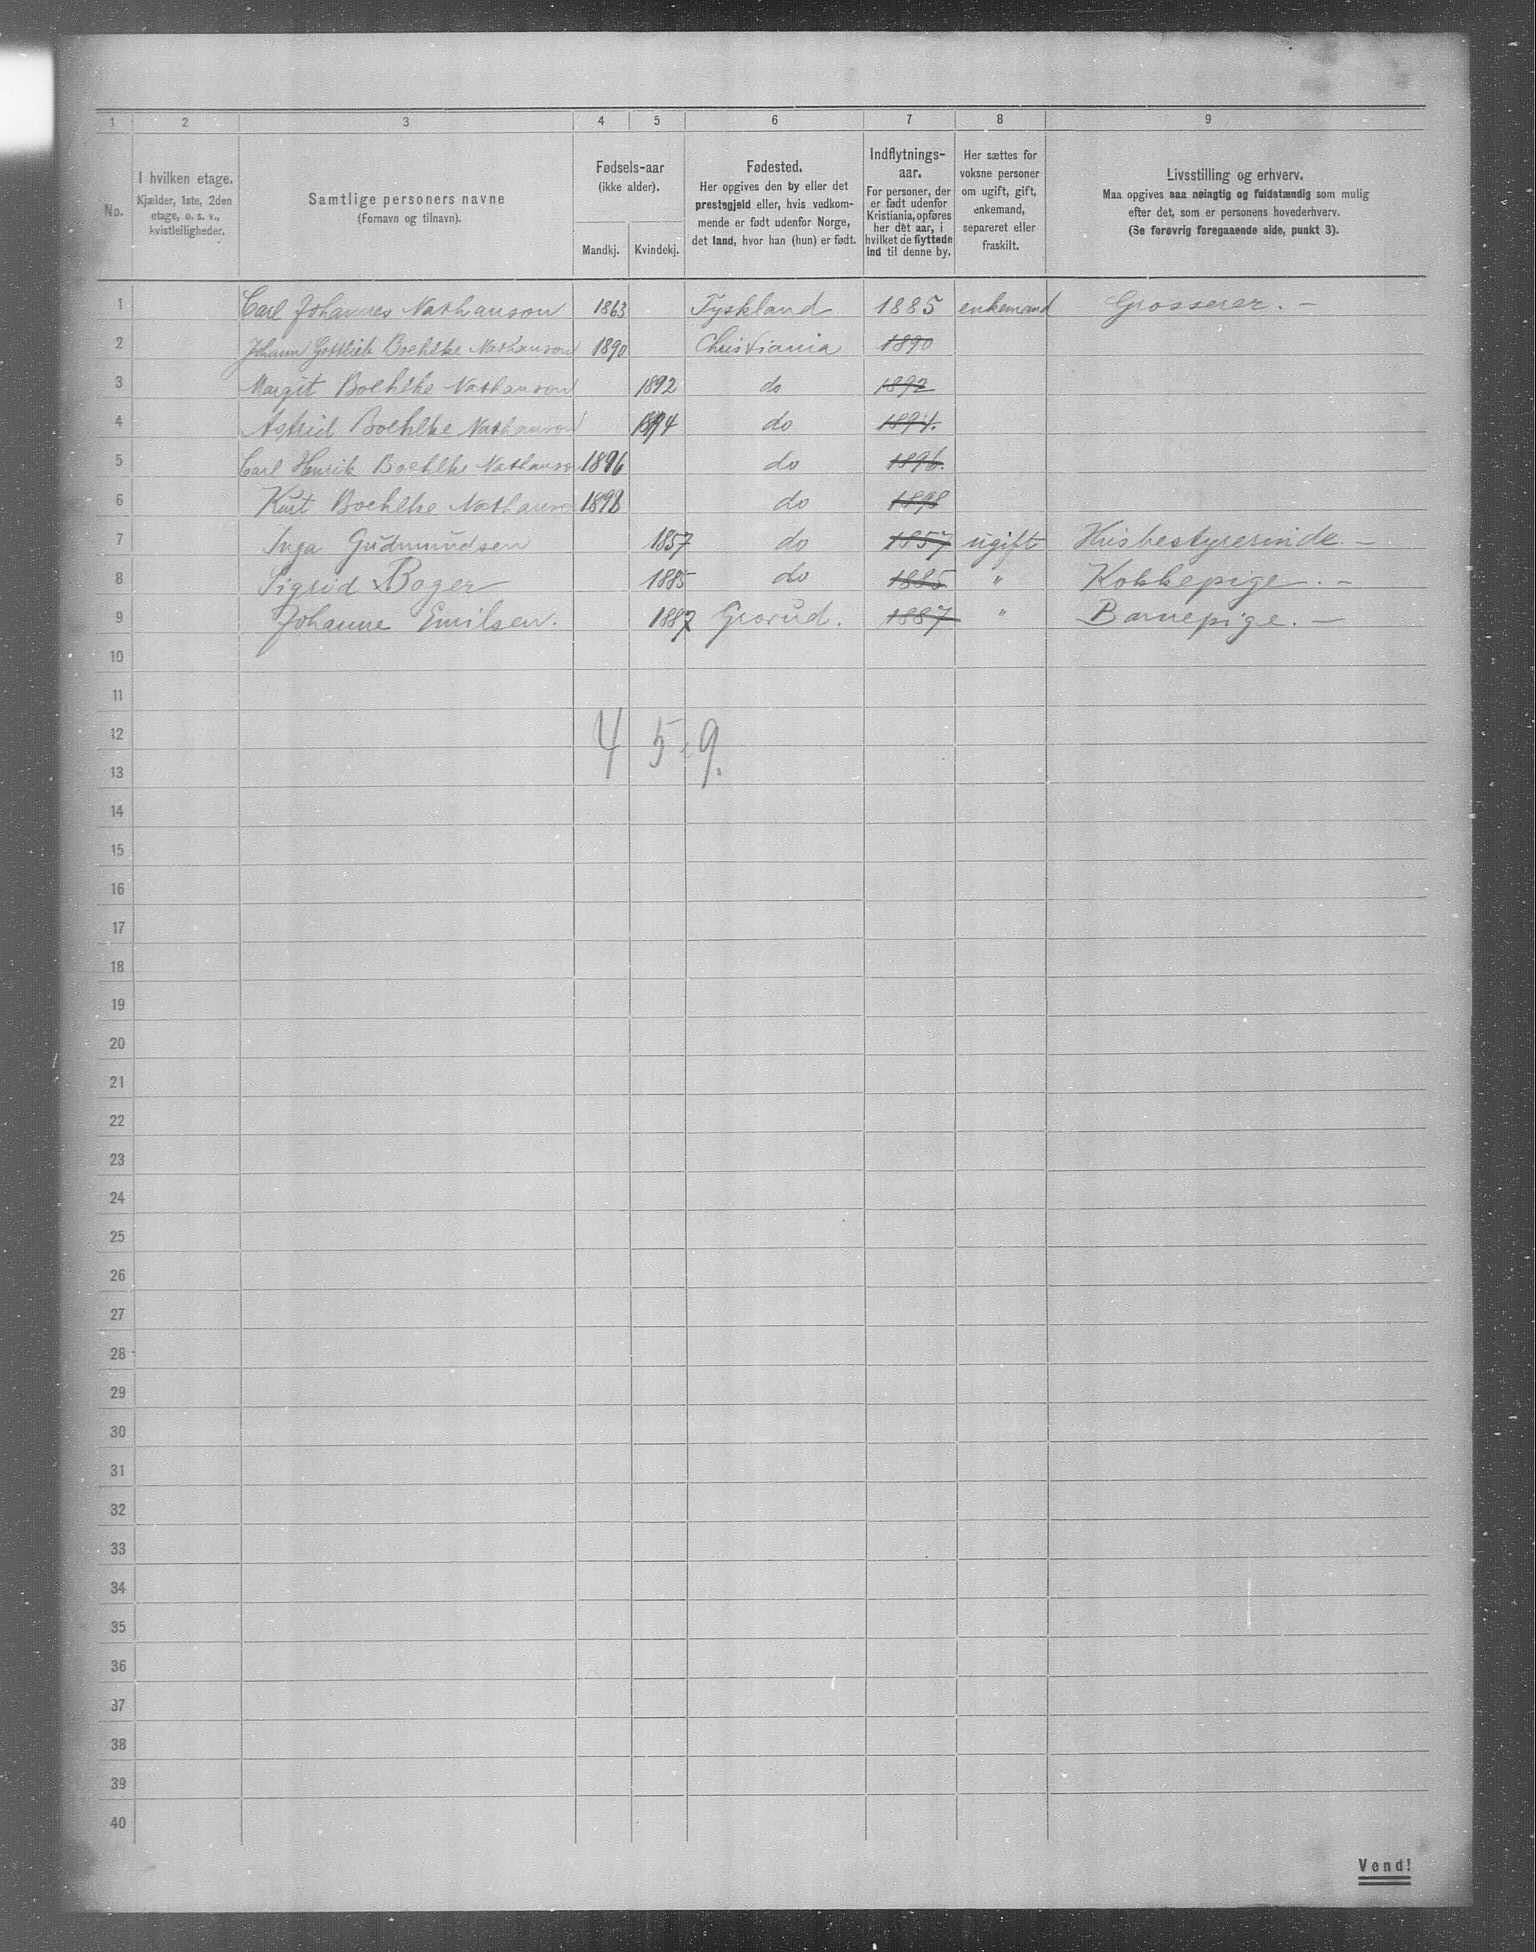 1 2 3 4 5 6 7 8 9
No.
I hvilken etage.
Kjælder, 1ste, 2den
etage, o. s. v.,
kvistleiligheder.
Samtlige personers navne
(Fornavn og tilnavn).
Fødsels-aar
(ikke alder).
Mandkj. Kvindekj.
Fødested.
Her opgives den by eller det
prestegjeld eller, hvis vedkom-
mende er født udenfor Norge,
det land, hvor han (hun) er født.
Indflytnings-
aar.
For personer, der
er født udenfor
Kristiania, opføres
her det aar, i
hvilket de flyttede
ind til denne by.
Her sættes for
voksne personer
om ugift, gift,
enkemand,
separeret eller
fraskilt.
Livsstilling og erhverv.
Maa opgives saa nøiagtig og fuldstændig som mulig
efter det, som er personens hovederhverv.
(Se forøvrig foregaaende side, punkt 3).
1 Carl Johannes Nathanson 1863 Tyskland 1885 enkemand Grosserer. —
2 Johann Gottlieb Boehlke Nathanson 1890 Christiania 1890
3 Margit Boehlke Nathanson 1892 do 1892
4 Astrid Boehlke Nathanson 1894 do 1894.
5 Carl Henrik Boehlke Nathanson 1896 do 1896.
6 Kurt Boehlke Nathanson 1898 do 1898
7 Inga Gudmundsen 1857 do 1857 ugift Husbestyrerinde —
8 Sigrid Boger 1885 do 1885 " Kokkepige. —
9 Johanne Emilsen. 1887 Grorud. 1887 " Barnepige. —
10
11
12 4 5 9.
13
14
15
16
17
18
19
20
21
22
23
24
25
26
27
28
29
30
31
32
33
34
35
36
37
38
39
40
Vend!